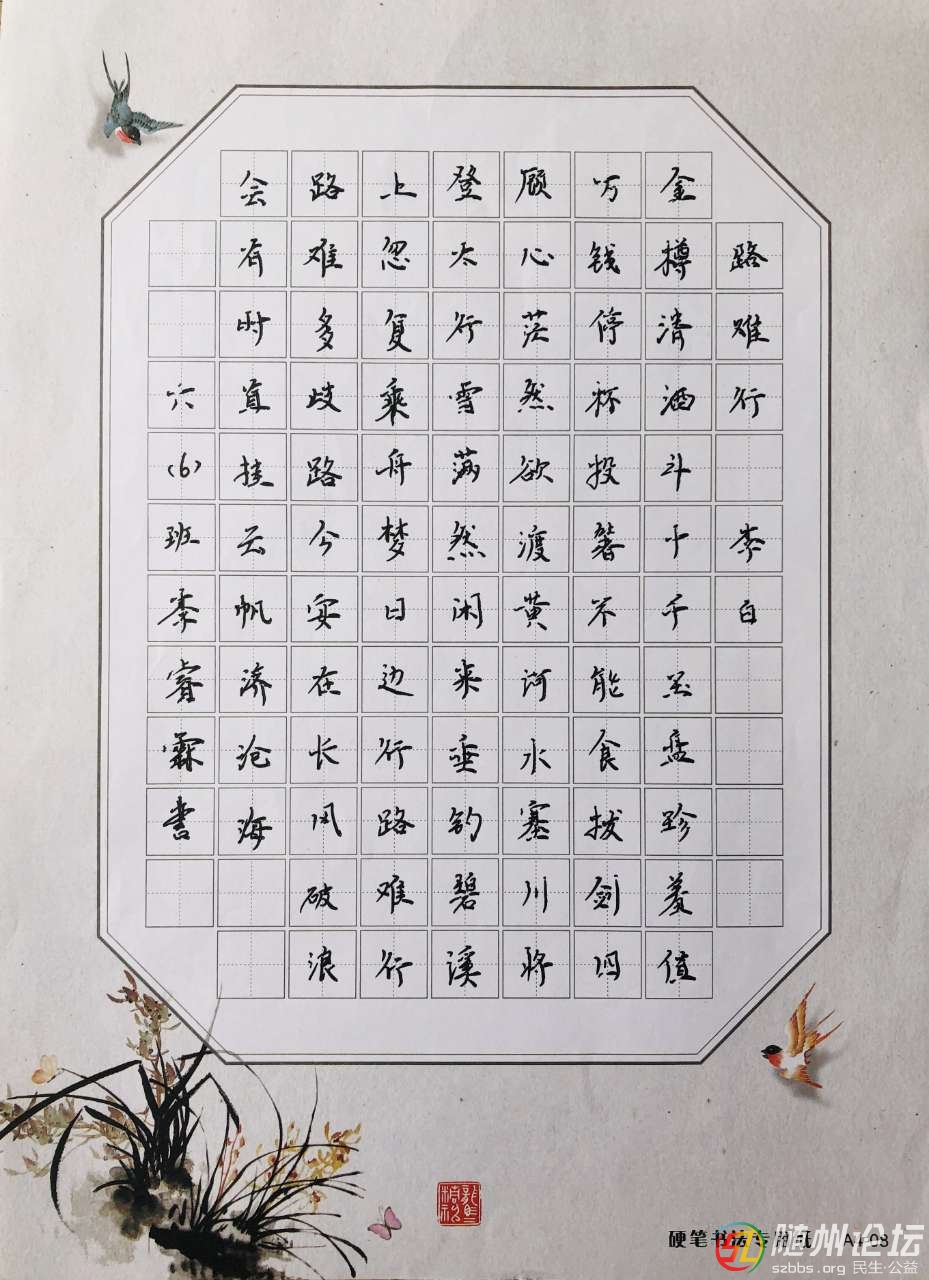 路难行 李白
金樽清酒斗十千玉盘珍羞值
万钱停杯投箸不能食拔剑四
顾心茫然欲渡黄河水塞川将
登太行雪满然闲来垂钓碧溪
上忽复乘舟梦日边行路难行
路难多歧路今安在长风破浪
会有时直挂云帆济沧海
六(6)班李睿霖书
硬笔书法专用纸 A4-08
随州论坛
szbbs.org 民生·公益